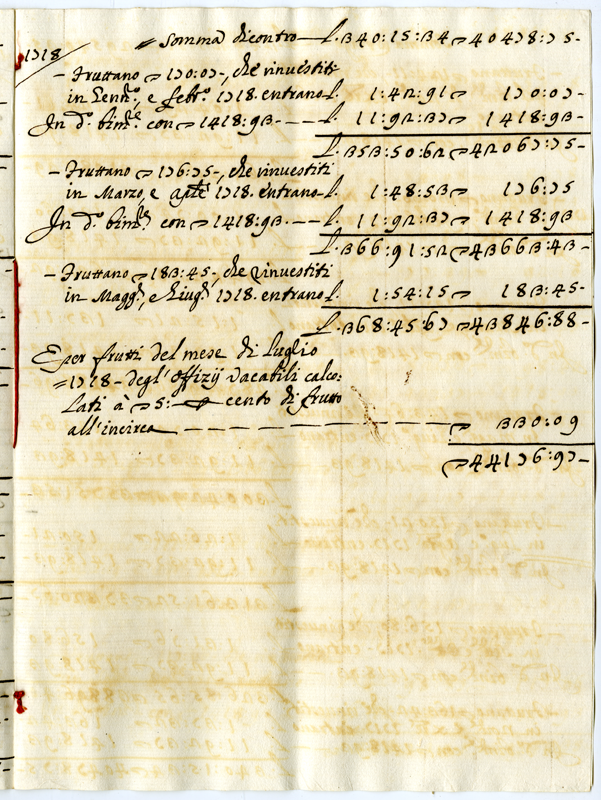 1718
= Somma di contro — L. 340:15:34 ▽ 40478:75-
- Fruttano ▽ 170:07-, che rinvestiti
in Genn.o, e Febr.o 1718. entrano L. 1:42:91 ▽ 170:07-
In d.o bim.e con ▽ 1418:93. —— L. 11:92:37 1418:93-
L. 353:50:62 ▽ 42067:75-
- Fruttano ▽ 176:75-, che rinvestiti
in Marzo, e Aple 1718. entrano L. 1:48:53 ▽ 176:75
In d.o bim.e con ▽ 1418:93. —— L. 11:92:37 1418:93-
L. 366:91:52 ▽ 43663:43-
- Fruttano ▽ 183:45-, che rinvestiti
in Magg.o, e Giug.o 1718. entrano L. 1:54:15 ▽ 183:45-
L. 368:45:67 ▽ 43846:88-
E per frutti del mese di Luglio
=1718- degl'Offizij Vacabili calco:
lati à ▽ 5: — cento di frutto
all'incirca — — — — — — ▽ 330:09
▽ 44176:97-